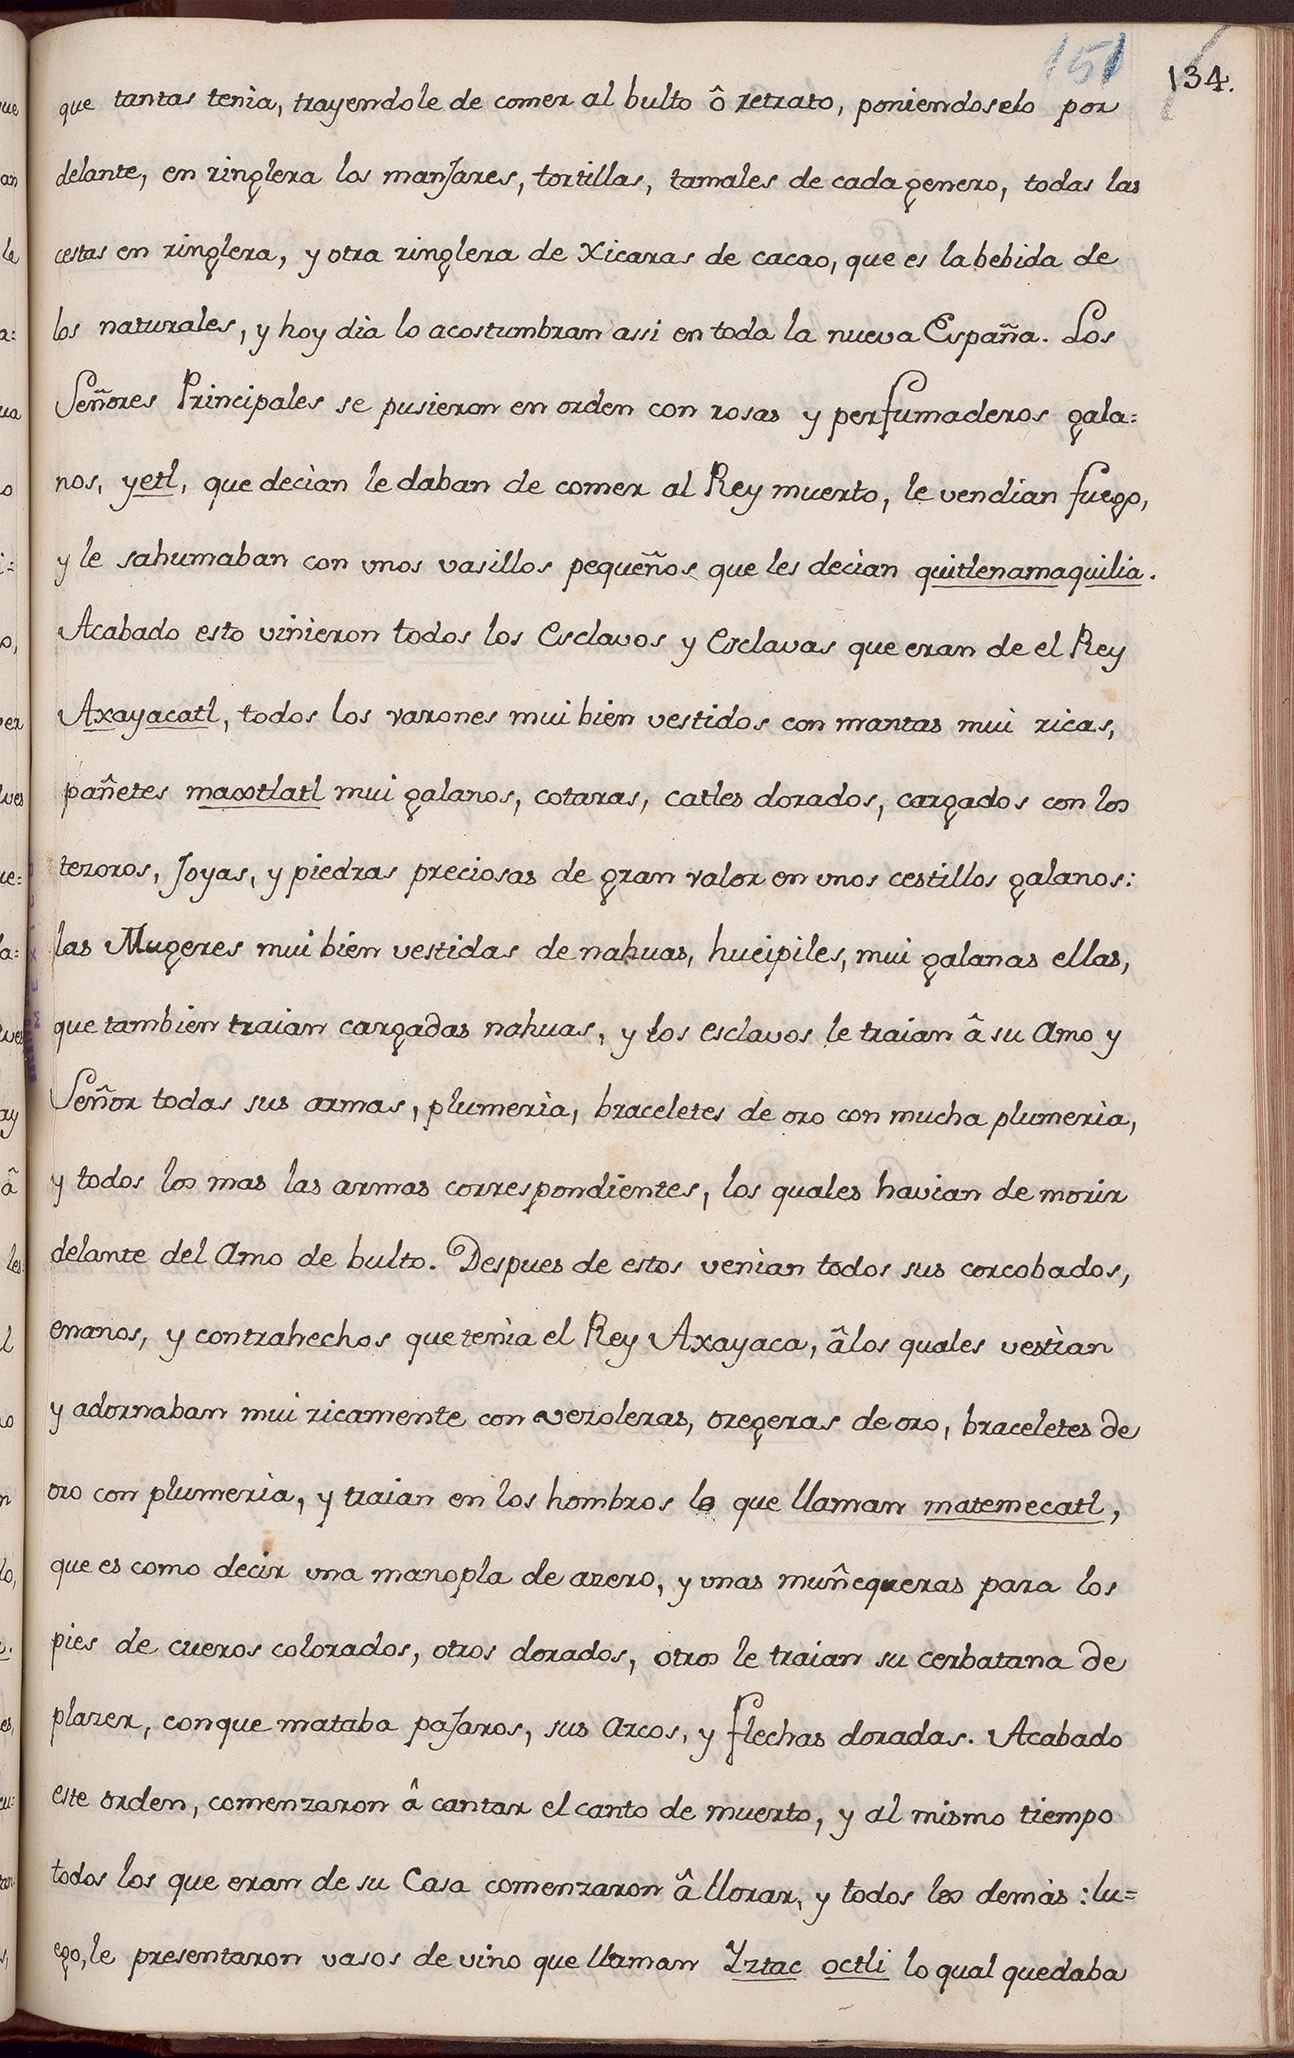 151
134.
que tantas tenia, trayendole de comer al bulto ô retrato, poniendoselo por
delante, en ringlera los manJares, tortillas, tamales de cada genero, todas las
cestas en ringlera, y otra ringlera de Xicaras de cacao, que es la bebida de
los naturales, y hoy dia lo acostumbran assi en toda la nueva España. Los
Señores Principales se pusieron en orden con rosas y perfumaderos gala=
nos, yetl, que decian le daban de comer al Rey muerto, le vendian fuego,
y le sahumaban con vnos vasillos pequeños que les decian quitlenamaquilia.
Acabado esto vinieron todos los Esclavos y Esclavas que eran de el Rey
Axayacatl, todos los varones mui bien vestidos con mantas mui ricas,
pañetes maxtlatl mui galanos, cotaras, catles dorados, cargados con los
tezoros, Joyas, y piedras preciosas de gran valor en vnos cestillos galanos:
las Mugeres mui bien vestidas de nahuas, hueipiles, mui galanas ellas,
que tambien traian cargadas nahuas, y los esclavos le traian â su Amo y
Señor todas sus armas, plumeria, braceletes de oro con mucha plumeria,
y todos los mas las armas correspondientes, los quales havian de morir
delante del Amo de bulto. Despues de estos venian todos sus corcobados,
enanos, y contrahechos que tenia el Rey Axayaca, âlos quales vestian
y adornaban mui ricamente con vezoleras, oregeras de oro, braceletes de
oro con plumeria, y traian en los hombros lo que llaman matemecatl,
que es como decir vna manopla de azero, y vnas muñequeras para los
pies de cueros colorados, otros dorados, otros le traian su cerbatana de
plazer, conque mataba paJaros, sus Arcos, y flechas doradas. Acabado
este orden, comenzaron â cantar el canto de muerto, y al mismo tiempo
todos los que eran de su Casa comenzaron â llorar, y todos los demàs: lu=
ego, le presentaron vasos de vino que llaman Yztac octli lo qual quedaba